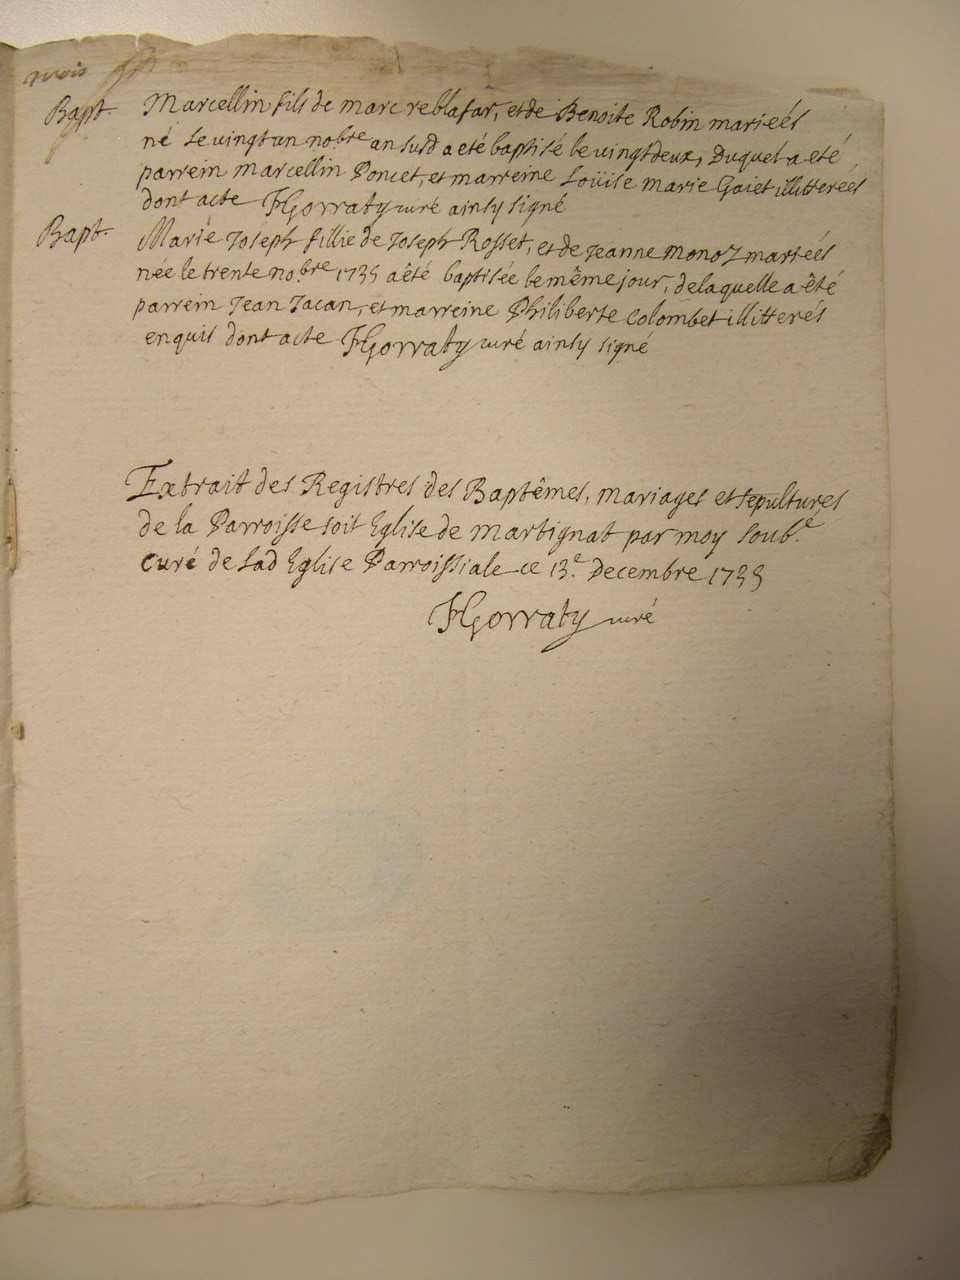 trois
Bapt. Marcellin fils de marc reblafar, et de Benoite Robin marieés
né Le vingt un nobre an susd a eté baptisé le vingt deux, Duquel a eté
parrein marcellin Poncet, et marreine Loüise marie Gaiet illitterés
dont acte Gorraty curé ainsy signé
Bapt. Marie Joseph fillie de Joseph Rosset, et de jeanne monoz marieés
née le trente nobre 1735 a êté baptisée le même jour, de laquelle a êté
parrein Jean Jacan, et marreine Philiberte Colombet illitterés
enquis dont acte Gorraty curé ainsy signé
Extrait des Registres des Baptêmes, mariages et sepultures
de la Parroisse soit Eglise de Martignat par moy soub.é
Curé de Lad Eglise Parroissiale ce 13.e Decembre 1735
Gorraty curé